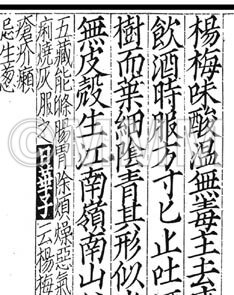 楊梅味酸溫無毒主去痰
飲酒時服方寸匕止吐酒
樹而葉細蔭青其形似水
無皮殼生江南嶺南山
五藏能滌腸胃除煩燥惡氣
痢燒灰服之日華子云楊梅
忌生葱